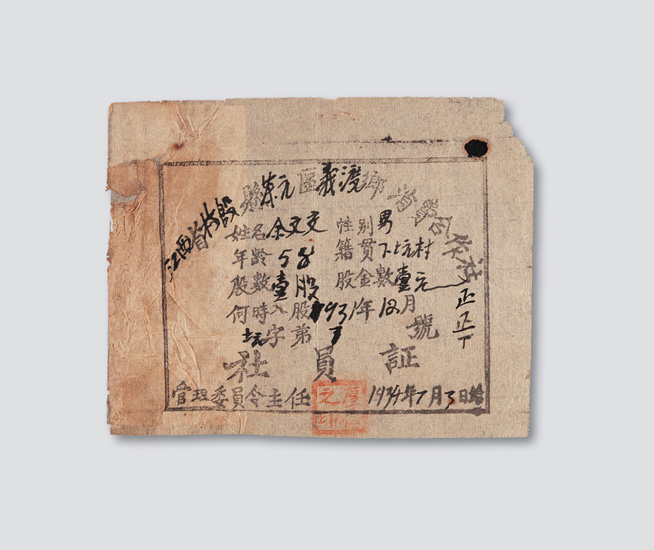 江西省縣東元區義渡鄉消費合作社
姓名余文交 性別男
年齡58 籍貫下坑村
股數壹股 股金數壹元
何時入股1931年12月
字第號
社員証
管理委員会主任 1934年7月3日給